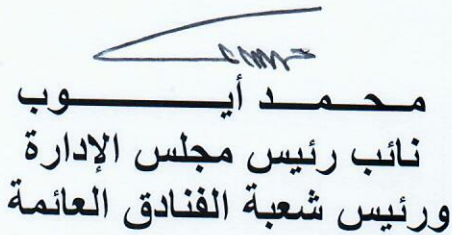 محمد أيوب
نائب رئيس مجلس الإدارة
ورئيس شعبة الفنادق العائمة